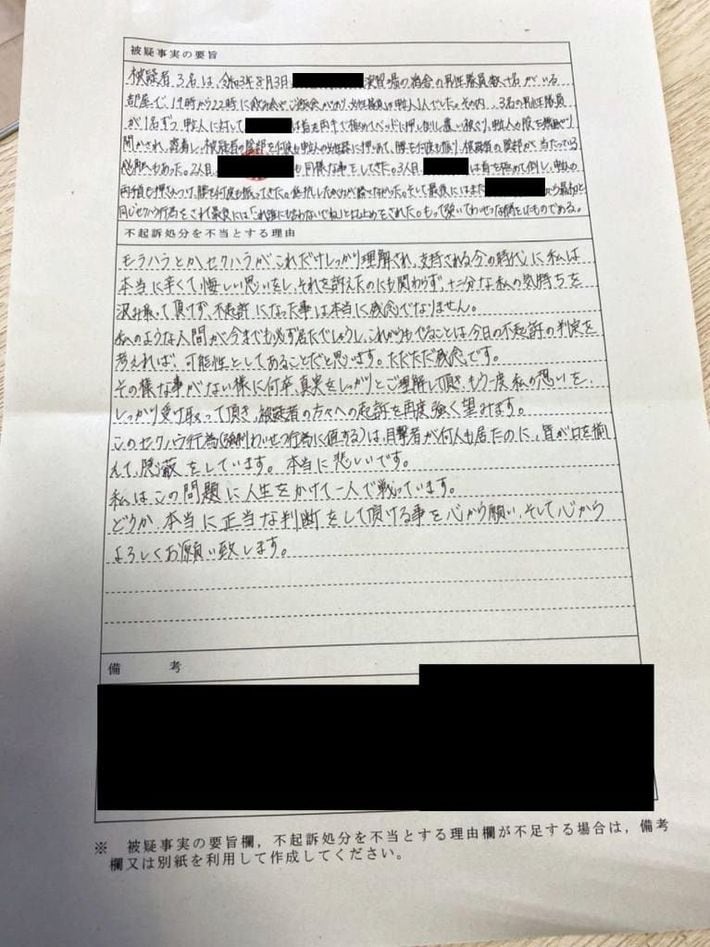 被疑事実の要旨
被疑者3名は、令和3年8月3日、演習場の宿舎の男性隊員数十名がいる
部屋で、19時から22時に飲み会で、女性隊員は申立人1人でした。その内、3名の男性隊員
が1名ずつ、申立人に対しては首を両手で極めてベッドに押し倒し覆い被さり、申立人の股を無理やり
開かされ、腰を何度も振り、
もあった。2人目、も同様な事をしてきた。3人目、は首を極めて倒し、申立人の
両手首を押さえつけ、腰を何度も振ってきた。抵抗したが力が勝てなかった。そして最後にはまた
同じセクハラ行為をされ最後には「これ誰にも言わないでね」と口止めをされた。もって強いてわいせつな行為をしたものである。
不起訴処分を不当とする理由
モラハラとか、セクハラがこれだけしっかり理解され、支持される今の時代に私は
本当に辛くて悔しい思いをし、それを訴えたのにも関わらず、十二分な私の気持ちを
汲み取って頂けず、不起訴になった事は本当に残念でなりません。
私のような人間が今までも必ず居たでしょうし、これからもでることは今日の不起訴の判断を
考えれば、可能性としてあることだと思います。ただただ残念です。
その様な事がない様に何卒、真実をしっかりとご理解して頂き、もう一度私の想いを、
しっかり受け取って頂き、被疑者の方々への起訴を再度強く望みます。
このセクハラ行為(強制わいせつ行為に値する)は、目撃者が何人も居たのに、皆が口を揃
えて、隠蔽をしています。本当に悲しいです。
私はこの問題に人生をかけて一人で戦っています。
どうか、本当に正当な判断をして頂ける事を心から願い、そして心から
よろしくお願い致します。
備考
※ 被疑事実の要旨欄，不起訴処分を不当とする理由欄が不足する場合は，備考
欄又は別紙を利用して作成してください。